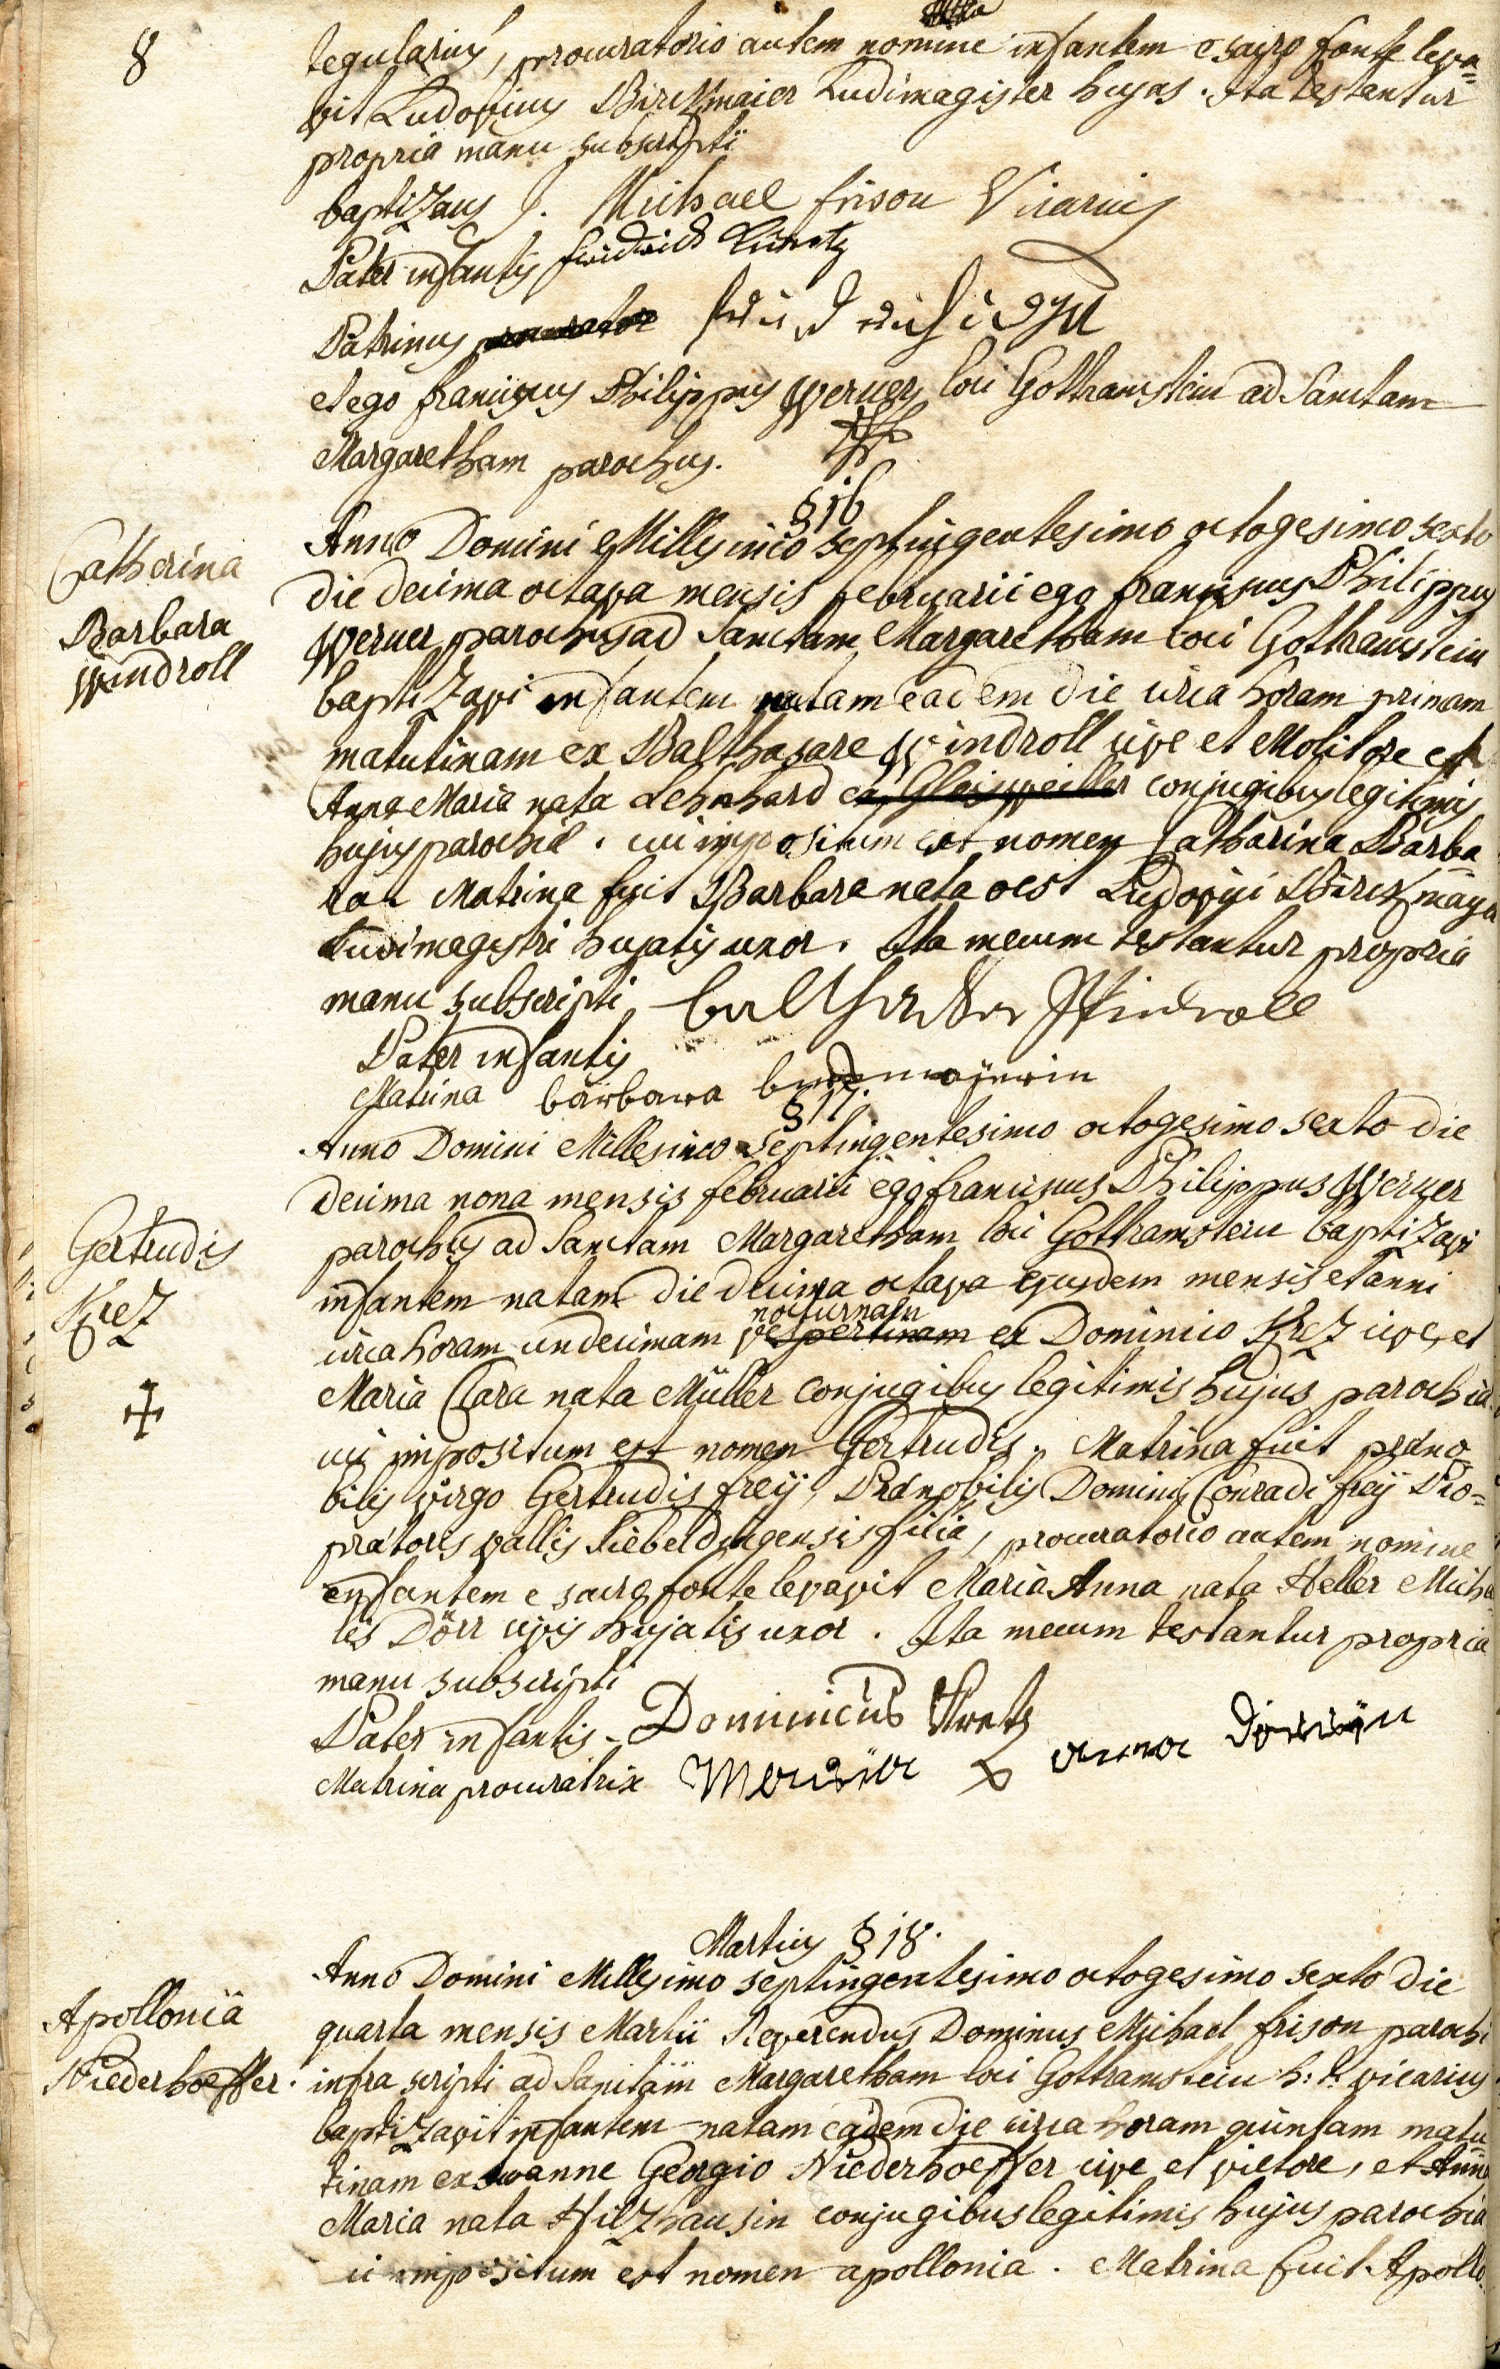 8
tegularius, procuratorio autem nomine infantem e sacro fonte leva=
vit Ludovicus Birckmaier Ludimagister hujas. Ita testantur
propria manu subscripti
baptizans J. Michael frison Vicarius
Pater infantis fridrich
Patrinus
et ego franciscus Philippus Werner loci Gothramstein ad Sanctam
Margaretham parochus.
§ 16
Catherina
Barbara
Windroll
Anno Domini Millesimo septingentesimo octogesimo sexto
die decima octava mensis februarii ego franciscus Philippus
Werner parochus ad Sanctam Margaretham loci Gothramstein
baptizavi infantem natam eadem die circa horam primam
matutinam ex Balthasare Windroll cive et Molitore et
Anna Maria nata Lehnhard ex Gleisweiller conjugibus legitimis
hujus parochiæ. cui impositum est nomen Catharina Barba
ra. Matrina fuit Barbara nata oest Ludovici Birckmaya
Ludimagistri hujatis uxor. Ita mecum testantur propria
manu subscripti balthasar Windroll
Pater infantis
Matrina barbara
§ 17.
Gertrudis
Krez
Anno Domini Millesimo septingentesimo octogesimo sexto die
decima nona mensis februarii ego franciscus Philippus Werner
parochus ad Sanctam Margaretham loci Gothramstein baptizavi
infantem natam die decima octava ejusdem mensis et anni
nocturnam
circa horam undecimam vespertinam ex Dominico Krez cive, et
Maria Clara nata Müller conjugibus legitimis hujus parochiæ
cui impositum est nomen Gertrudis. Matrina fuit præno
bilis virgo Gertrudis freÿ, Prænobilis Domini Conradi freÿ Pro=
prætoris vallis Siebeldingensis filia, procuratorio autem nomine
infantem e sacro fonte levavit Maria Anna nata Heller Micha
lis Dörr civis hujatis uxor. Ita mecum testantur propria
manu subscripti
Pater infantis - Dominicus Kretz
Matrina procuratrix Maria anna Dörrin
Martius § 18.
Apollonia
Niederhoeffer.
Anno Domini Millesimo septingentesimo octogesimo sexto die
quarta mensis Martii Reverendus Dominus Michael frison parochi
infra scripti ad Sanctam Margaretham loci Gothramstein h: t: vicarius
baptizavit infantem natam eadem die circa horam quintam matu
tinam ex Joanne Georgio Niederhoeffer cive et vietore, et Anna
Maria nata Hilzhausin conjugibus legitimis hujus parochiæ
cui impositum est nomen apollonia. Matrina fuit Apollo